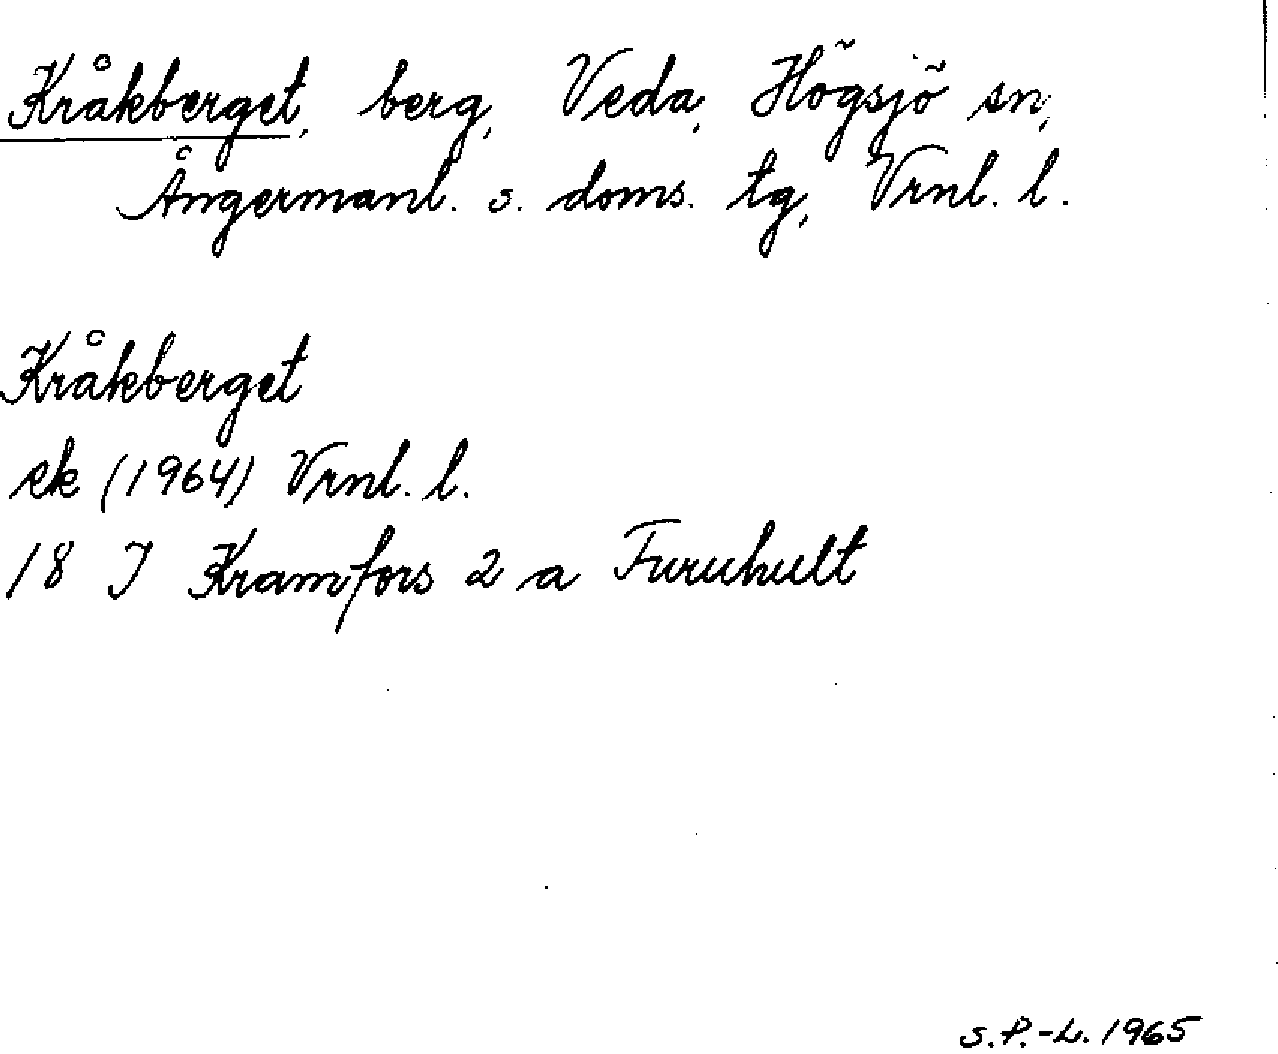 Kråkberget, berg, Veda, Högsjö sn,
Ångermanl. s. doms. tg, Vrnl. l.
Kråkberget
ek (1964) Vrnl. l.
18 J Kramfors 2 a Furuhult
S.P.-L. 1965